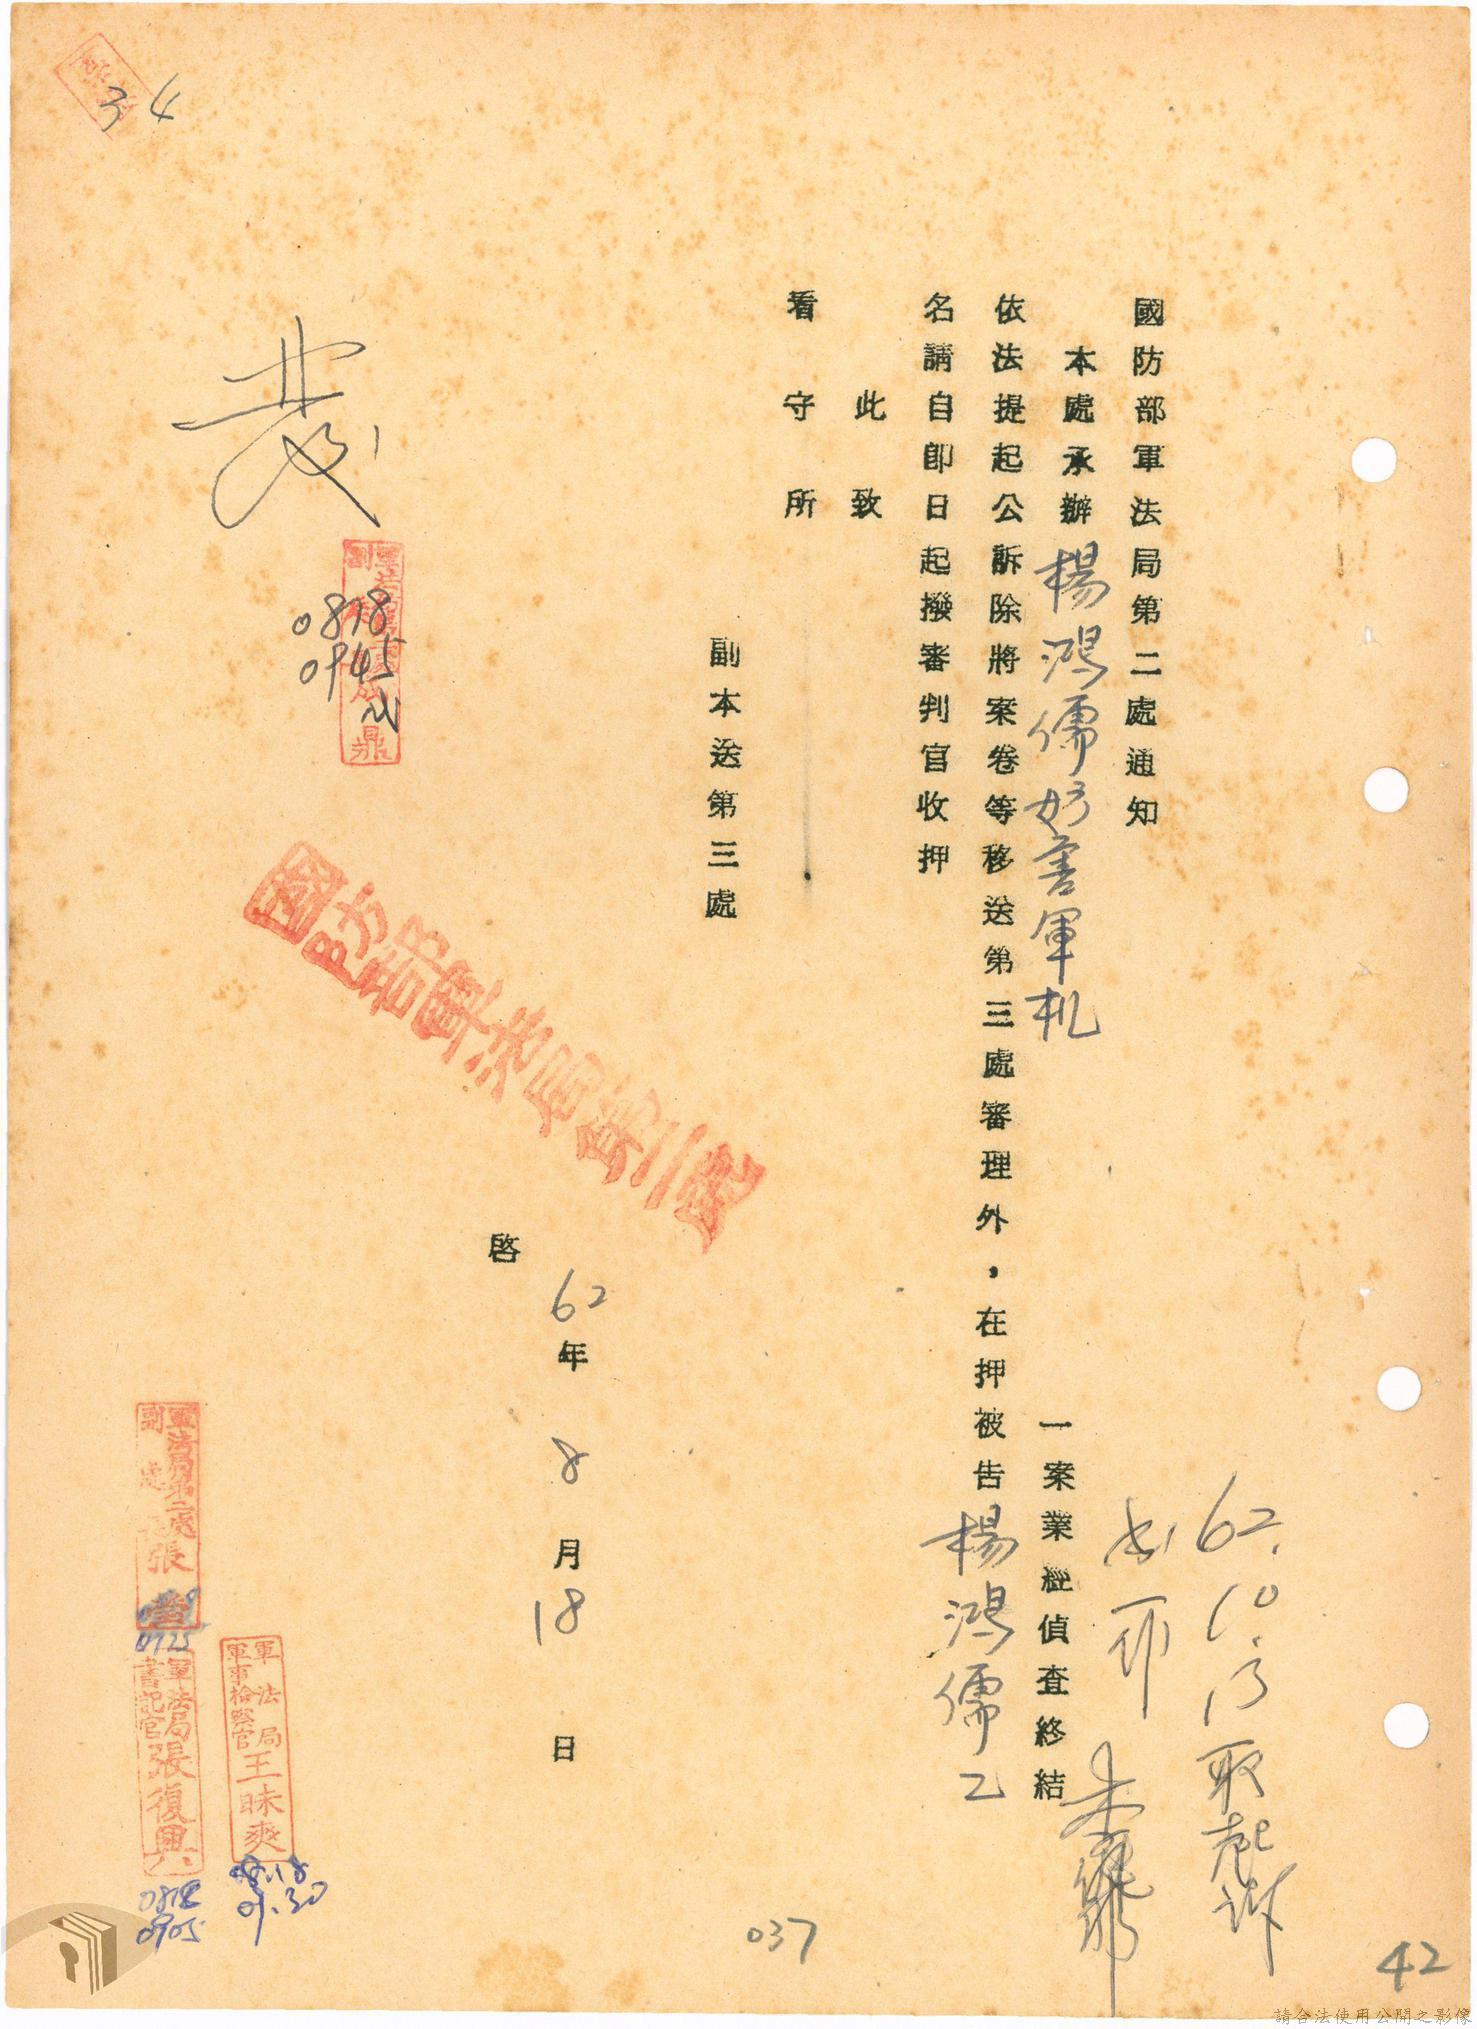 國防部軍法局第二處通知
本處承辦楊鴻儒妨害軍机一案業經偵查終結
依法提起公訴除將案卷等移送第三處審理外，在押被告楊鴻儒乙
名請自即日起撥審判官收押
此致
看守所
副本送第三處
62年8月18日
啓
國防部軍法局第二處
62.10.13取起訴
書一份
0818
0945
軍法局
軍事檢察官
王昧爽
08.18
09.30
軍法局第二處
副處長張
0925
軍法局
書記官
張復興
0818
0905
34
037
42
請合法使用公開之影像